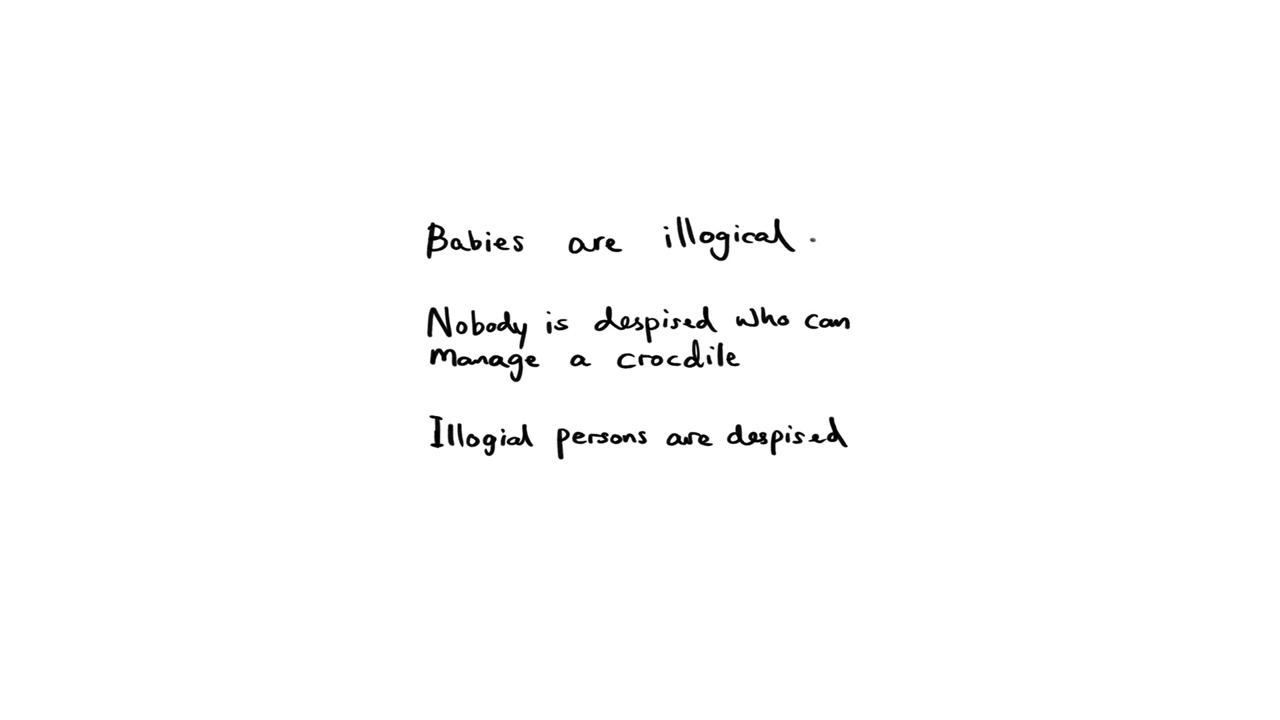 Babies are illogical.
Nobody is despised who can
manage a crocdile
Illogial persons are despised